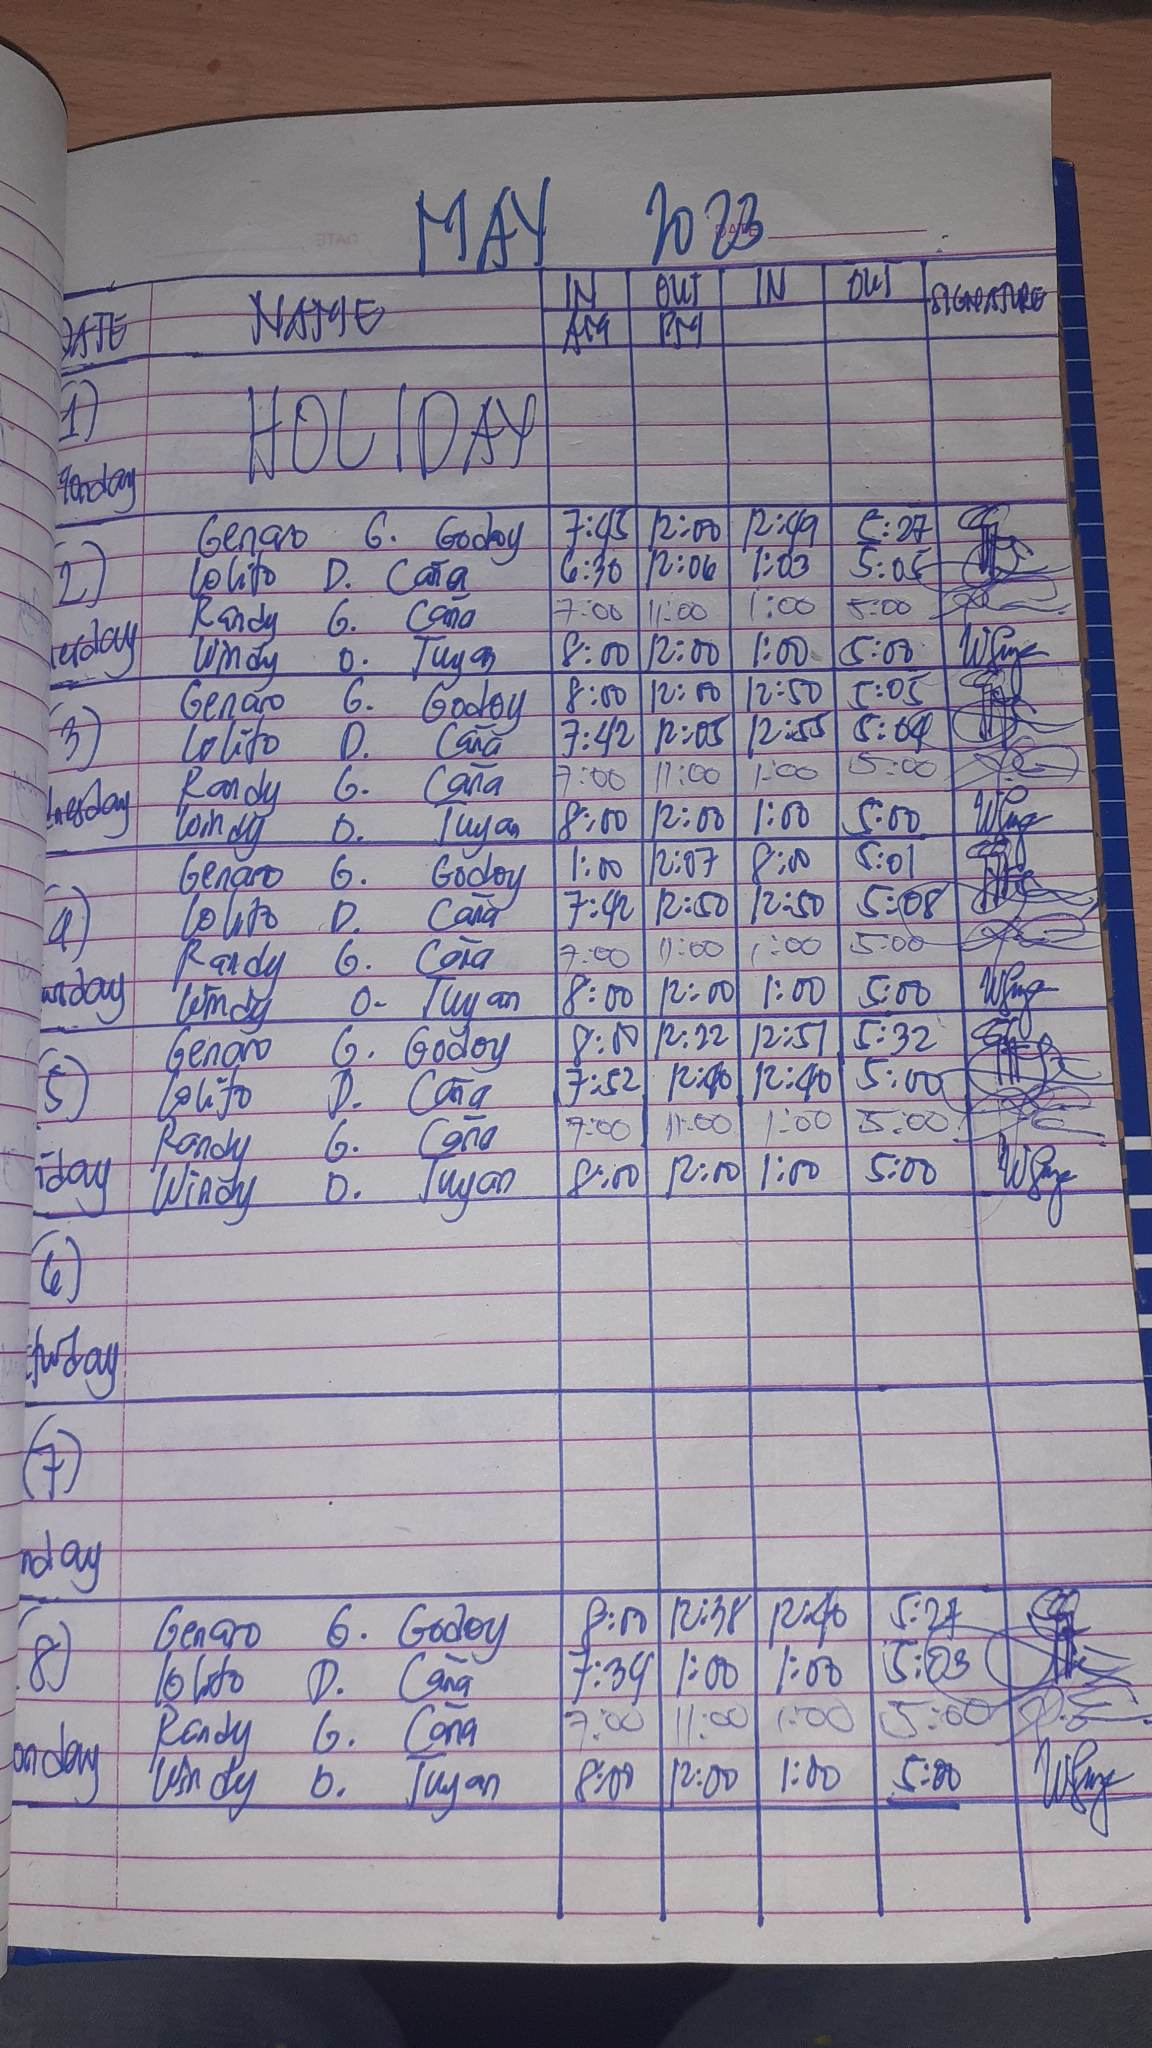 MAY 2023
DATE
DATE NAME IN OUT IN OUT SIGNATURE
AM PM
1)
onday HOLIDAY
Genaro G. Godoy 7:45 12:00 12:49 5:27
2) Lolito D. Caña 6:30 12:06 1:03 5:05
Randy G. Caña 7:00 11:00 1:00 5:00
esday Windy O. Tuyan 8:00 12:00 1:00 5:00
Genaro G. Godoy 8:00 12:00 12:50 5:05
3) Lolito D. Caña 7:42 12:05 12:55 5:04
Randy G. Caña 7:00 11:00 1:00 5:00
nesday Windy O. Tuyan 8:00 12:00 1:00 5:00
Genaro G. Godoy 1:00 12:07 8:00 5:01
4) Lolito D. Caña 7:42 12:50 12:50 5:08
Randy G. Caña 7:00 11:00 1:00 5:00
rsday Windy O. Tuyan 8:00 12:00 1:00 5:00
Genaro G. Godoy 8:00 12:22 12:51 5:32
5) Lolito D. Caña 7:52 12:40 12:40 5:00
Randy G. Caña 7:00 11:00 1:00 5:00
iday Windy O. Tuyan 8:00 12:00 1:00 5:00
(6)
turday
(7)
nday
Genaro G. Godoy 8:00 12:38 12:40 5:27
8) Lolito D. Caña 7:34 1:00 1:00 5:03
Randy G. Caña 7:00 11:00 1:00 5:00
onday Windy O. Tuyan 8:00 12:00 1:00 5:00